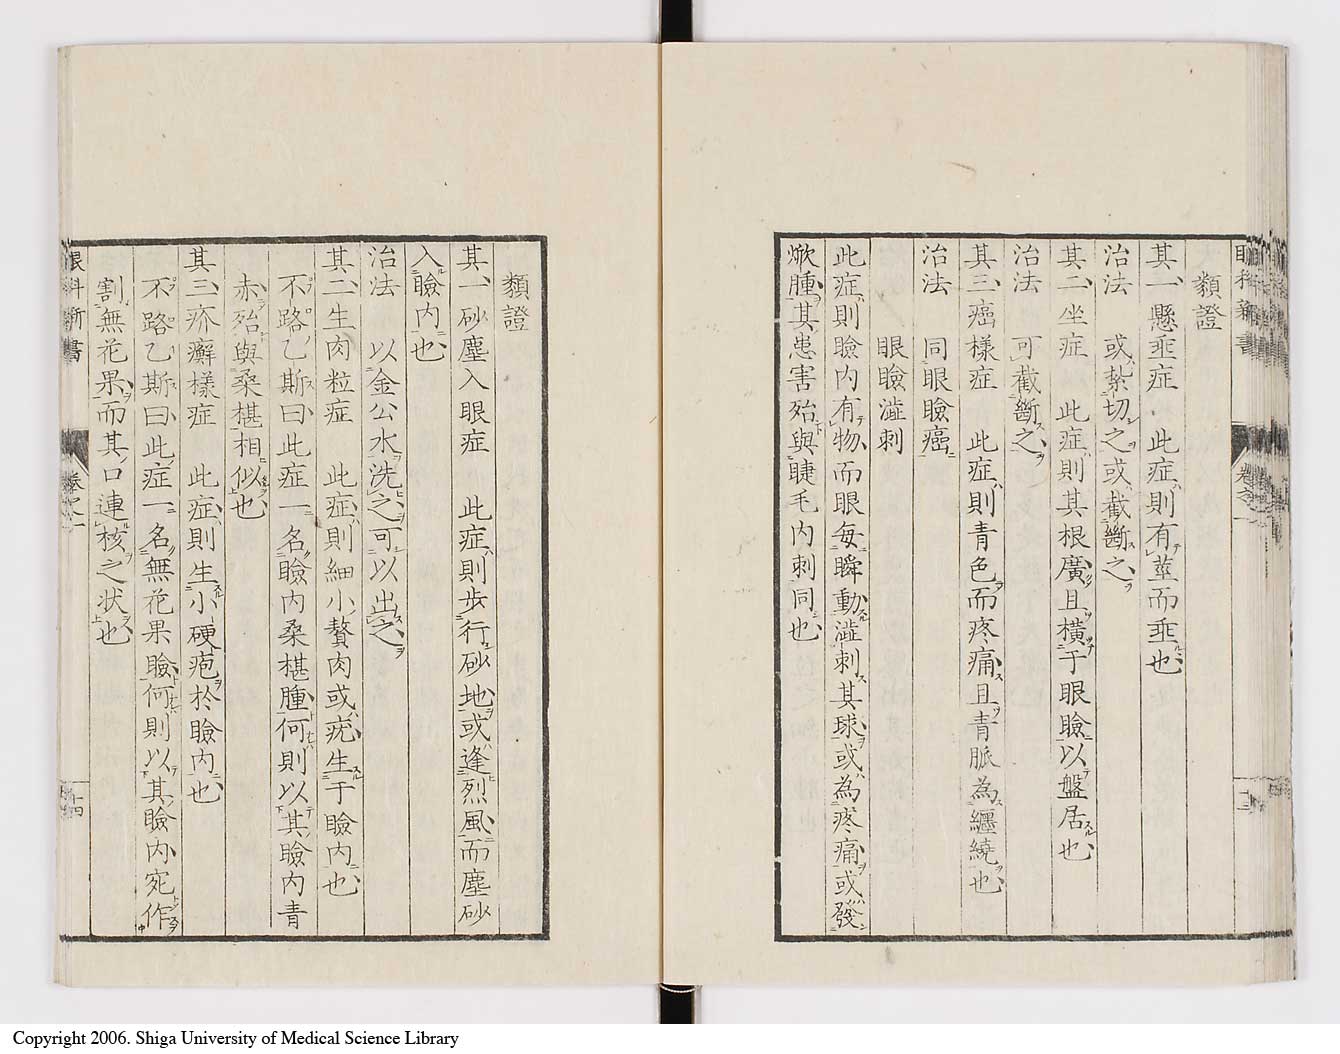 眼科新書
卷之一
類證
其一懸垂症 此症則有莖而垂也
治法 或紮切之或截斷之
其二坐症 此症則其根廣且橫于眼瞼以盤居也
治法 可截斷之
其三癌樣症 此症則青色而疼痛且青脈為纏繞也
治法 同眼瞼癌
眼瞼澁刺
此症則瞼内有物而眼每瞬動澁刺其球或為疼痛或發
焮腫其患害殆與睫毛内刺同也
類證
其一砂塵入眼症 此症則步行砂地或逢烈風而塵砂
入瞼内也
治法 以金公水洗之可以出之
其二生肉粒症 此症則細小贅肉或疣生于瞼内也
不路乙斯曰此症一名瞼内桑椹腫何則以其瞼内青
赤殆與桑椹相似也
其三疥癬樣症 此症則生小硬疱於瞼内也
不路乙斯曰此症一名無花果瞼何則以其瞼内宛作
割無花果而其口連核之状也
眼科新書
卷之一
十四
Copyright 2006. Shiga University of Medical Science Library